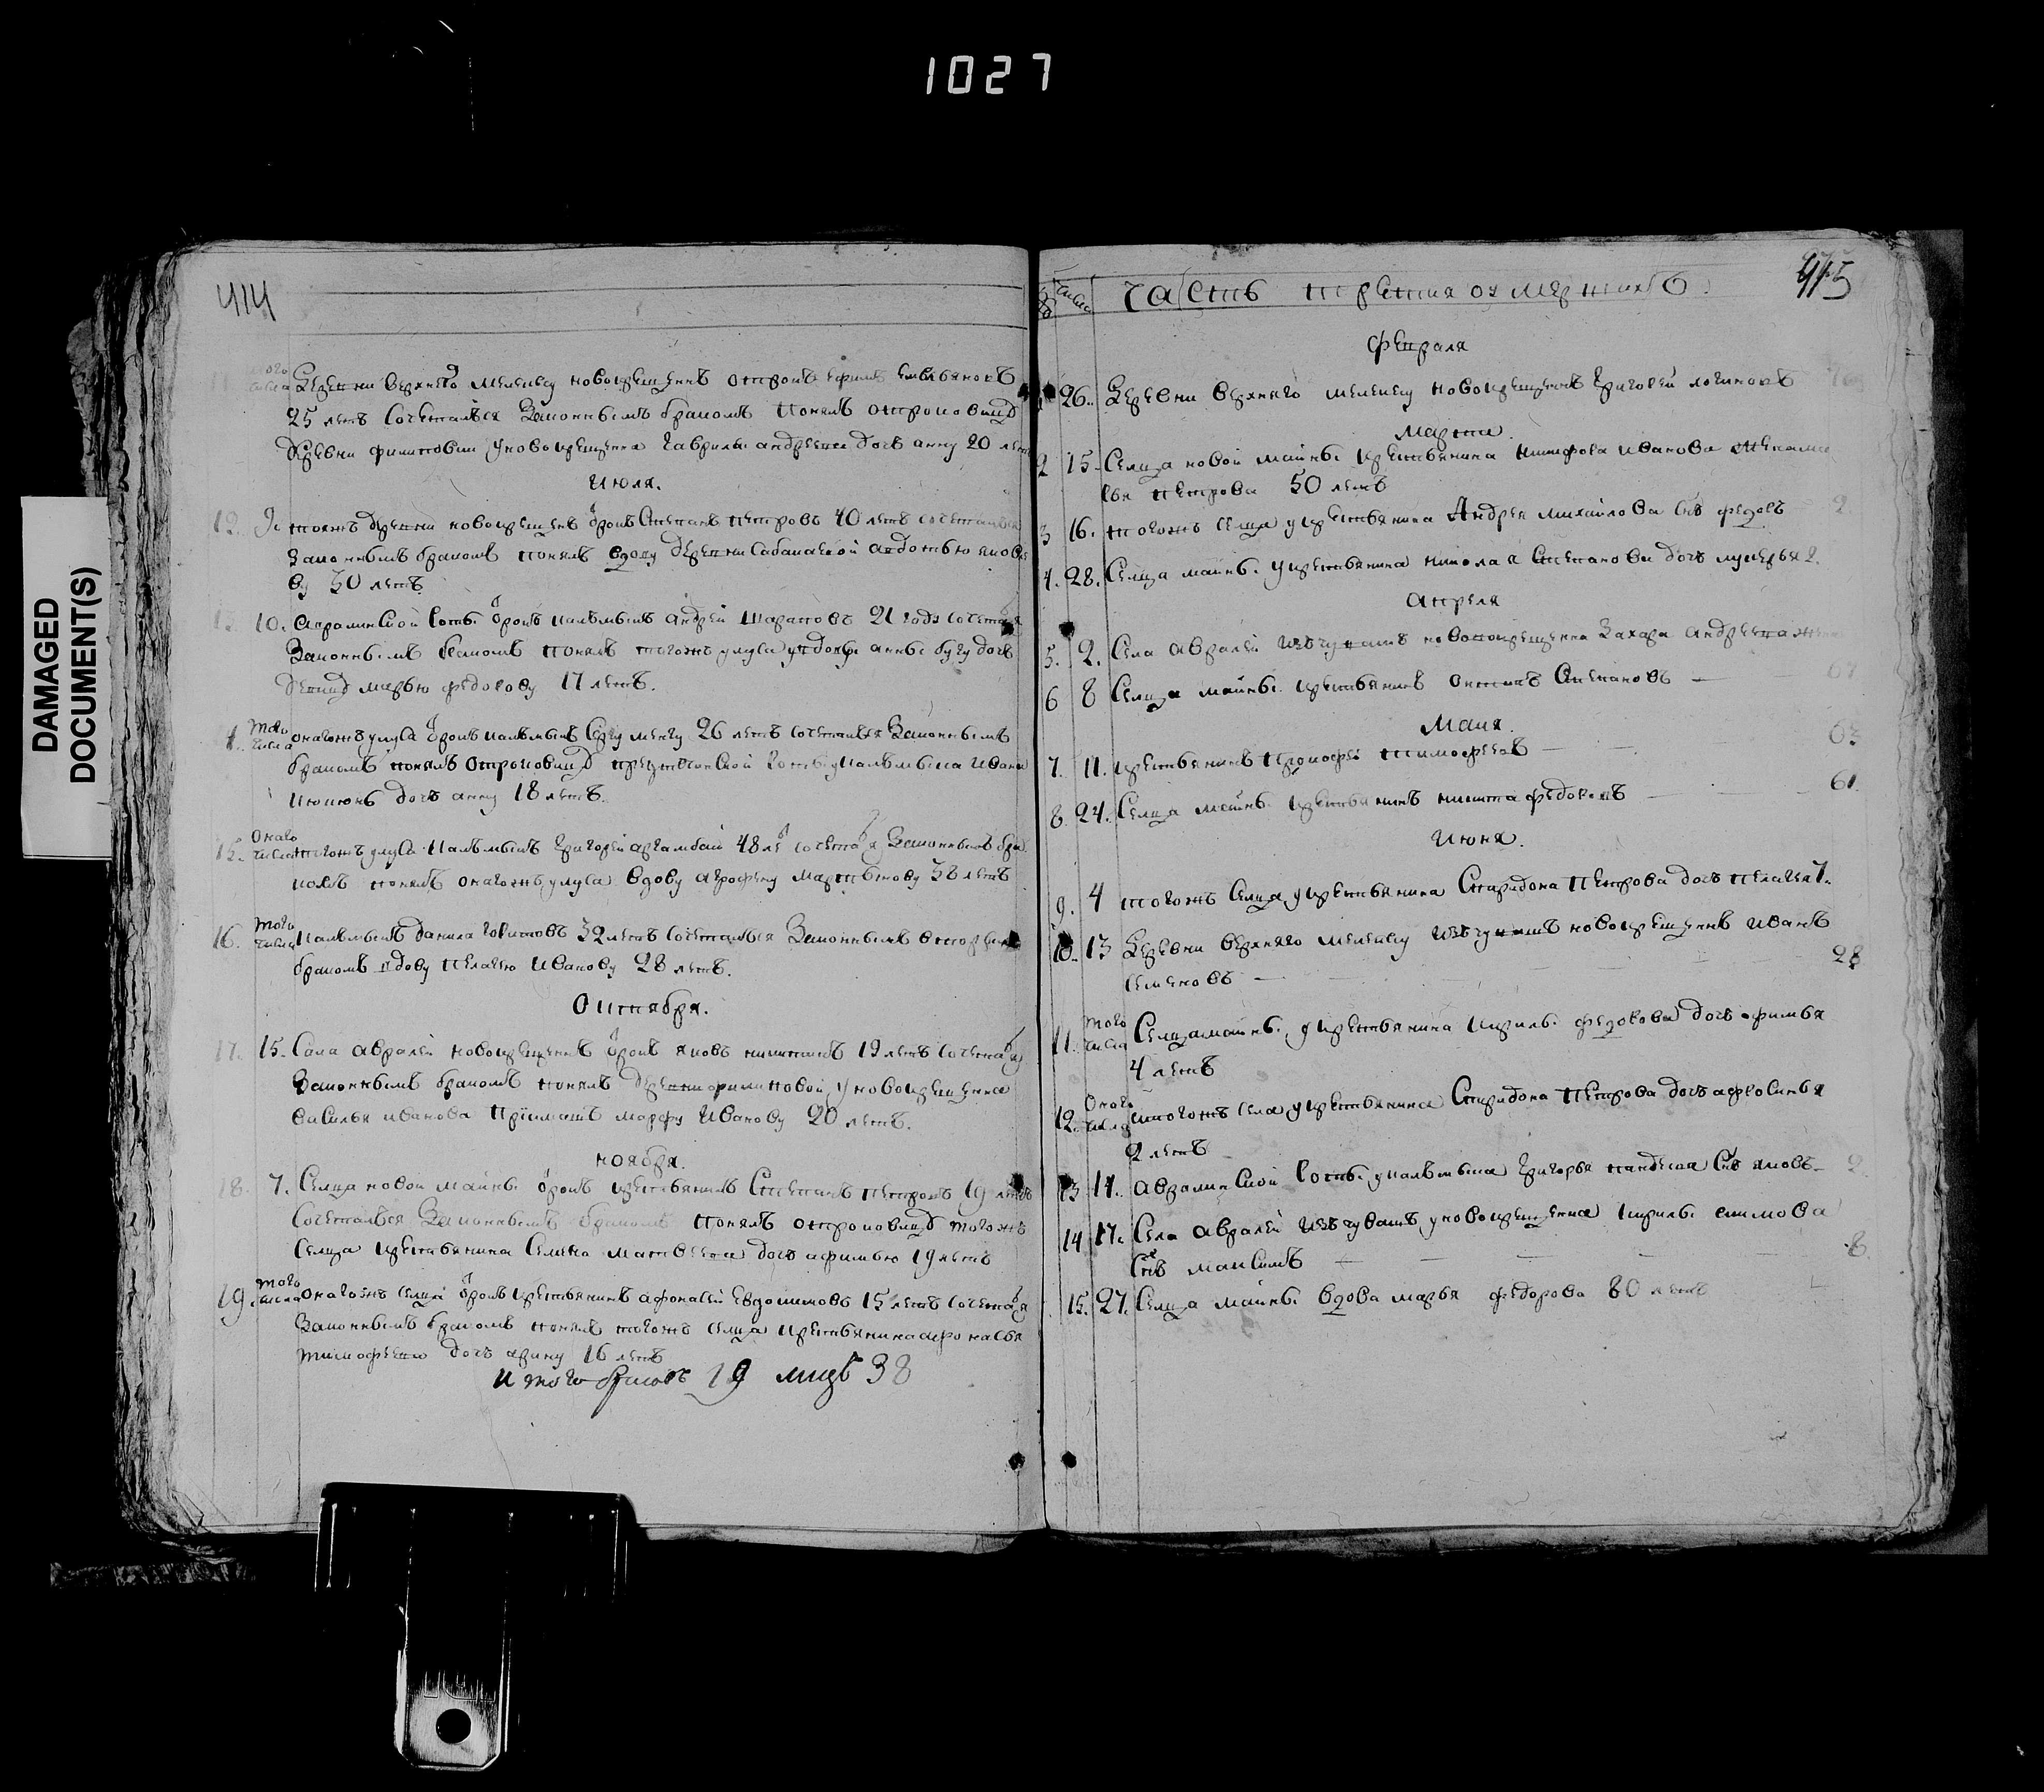 1027
DAMAGED
DOCUMENT(S)
414
того
числа
деревни верхнего мелекесу новокрещенъ отрокъ ефимъ емельяновъ
25 летъ сочетался законнымъ бракомъ понялъ отроковицу
деревни филиповки у новокрещена гаврилы андреева дочь анну 20 летъ
июля.
12. 9. тояжъ деревни новокрещенъ отрокъ степанъ петровъ 40 летъ сочетался
законнымъ бракомъ понялъ вдову деревни сабакаевой авдотью яковле
ву 30 летъ
10. авралинской сотни отрокъ калмыкъ андрей шараповъ 21 году сочетался
законнымъ бракомъ понялъ тогожъ улуса анны бугу дочь
девицу марью федорову 17 летъ.
того
числа
онагожъ улуса отрокъ калмыкъ 26 летъ сочетался законнымъ
бракомъ понялъ отроковицу сотни у калмыка ивана
дочь анну 18 летъ.
15. онаго
числа
тогожъ улуса калмыкъ григорей 48 ле сочетался законнымъ бра
комъ понялъ онагожъ улуса вдову аграфену мартынову 38 летъ
16. того
числа
калмыкъ данила 32 летъ сочетался законнымъ вторымъ
бракомъ вдову пелагею иванову 28 летъ.
октября.
17. 15. села авралей новокрещенъ отрокъ яковъ никитинъ 19 летъ сочетался
законнымъ бракомъ понялъ деревни филиповой у новокрещена
василья иванова приемышъ марфу иванову 20 летъ.
ноября.
18. 7. сельца новой майны отрокъ крестьянинъ степанъ петровъ 19 летъ
сочетался законнымъ бракомъ понялъ отроковицу тогожъ
сельца крестьянина семена матвеева дочь афимью 19 летъ
19. того
числа
онагожъ сельца отрокъ крестьянинъ афонасей евдокимовъ 15 летъ сочетался
законнымъ бракомъ понялъ тогожъ сельца крестьянина афонасья
тимофеева дочь арину 16 летъ
итого браковъ 19 лицъ 38
415
число
часть третия о умершихъ
февраля
26. деревни верхнего мелекесу новокрещенъ григорей логиновъ
марта
2 15. сельца новой майны крестьянина никифора иванова жена
петрова 50 летъ
3 16. тогожъ сельца у крестьянина андрея михайлова снъ федоръ 2
4. 28. сельца майны у крестьянина николая степанова дочь лукерья 2.
апреля
5. 2. села авралей изъ чувашъ новокрещена захара андреева жена
6 8 сельца майны крестьянинъ степановъ
маия.
7. 11. крестьянинъ прокофей тимофеевъ
8. 24. сельца майны крестьянинъ никита федоровъ 61.
июня.
9. 4 тогожъ сельца у крестьянина спиридона петрова дочь пелагея 7.
10. 13 деревни верхняго мелекесу изъ чувашъ новокрещенъ иванъ
семеновъ 28
11. того
числа
сельца майны у крестьянина кирилы федорова дочь афимья
4 летъ
12. онаго
числа
тогожъ села у крестьянина спиридона петрова дочь афросинья
2 летъ
13 14. авралинской сотни у калмыка григорья снъ яковъ 2
14 17. села авралей изъ чувашъ у новокрещена кирилы
снъ максимъ 8.
15. 27. сельца майны вдова марья федорова 80 летъ